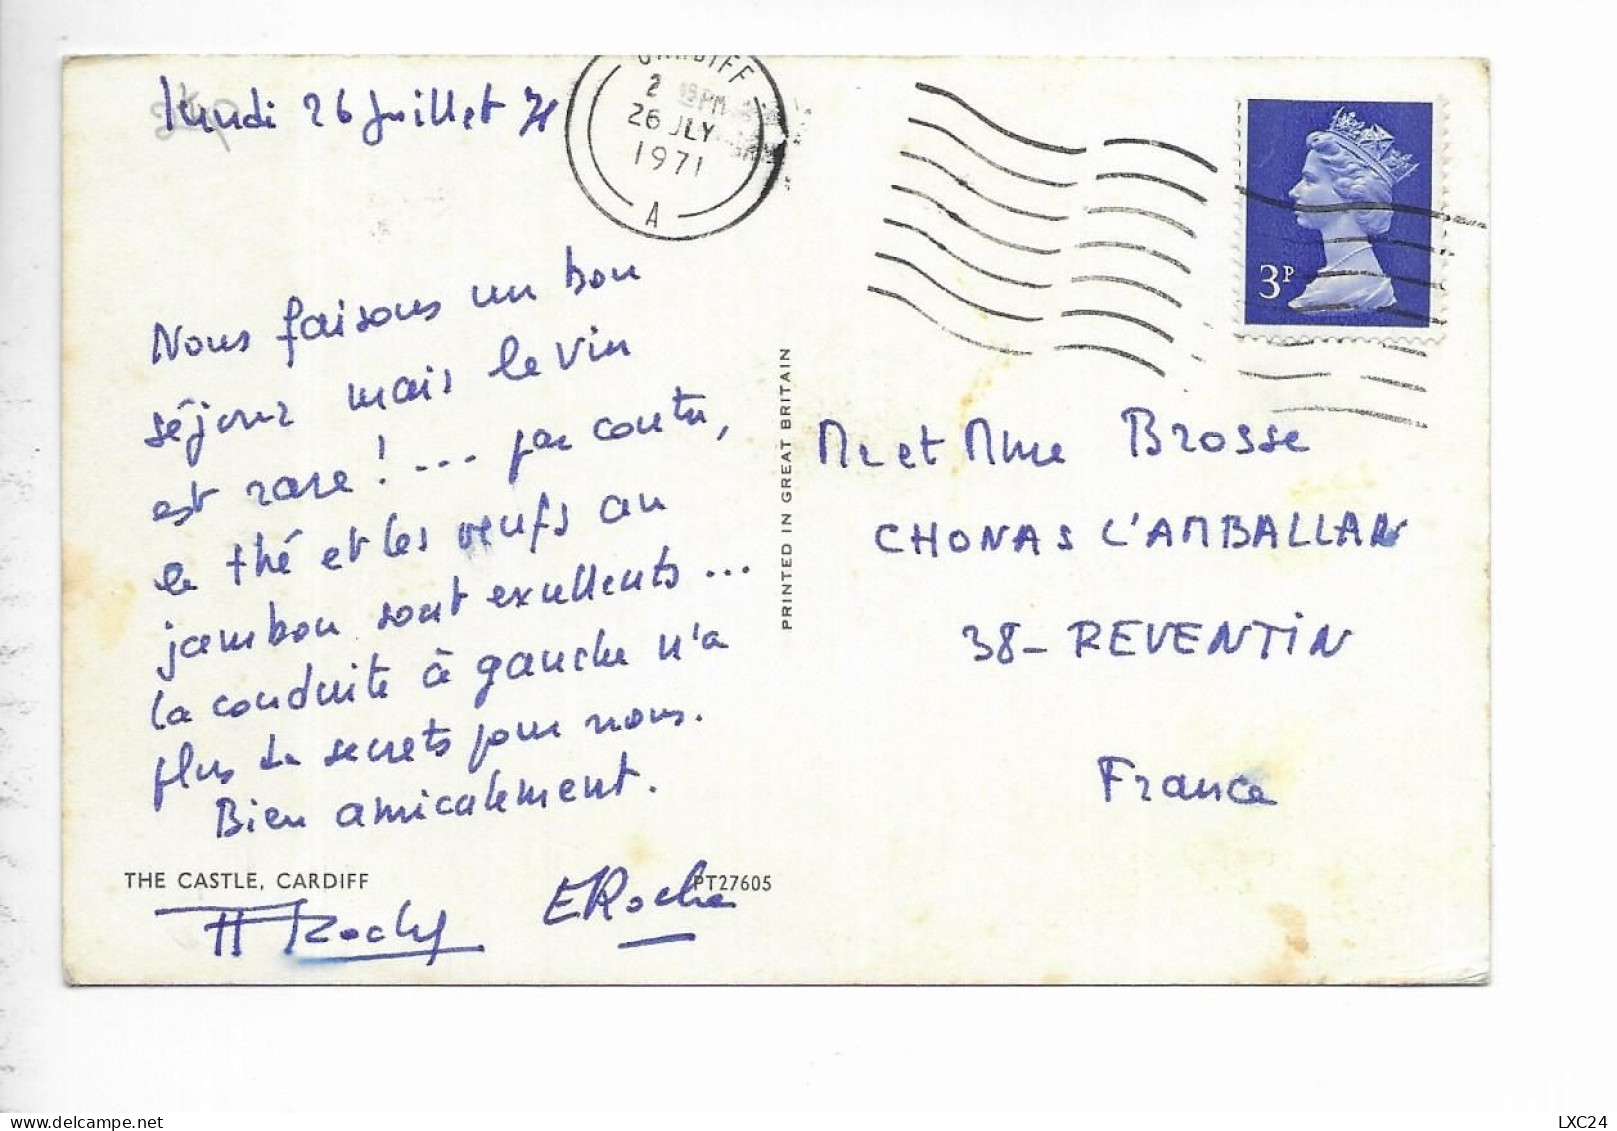 Lundi 26 Juillet 71
CARDIFF
2 15 PM
26 JLY
1971
A
3P
Nous faisons un bon
séjour mais le vin
est rare! ... par contre,
le thé et les oeufs au
jambon sont excellents ...
la conduite à gauche n'a
plus de secrets pour nous.
Bien amicalement.
THE CASTLE, CARDIFF
PT27605
Roche
ERoche
PRINTED IN GREAT BRITAIN
Mr et Mme Brosse
CHONAS L'AMBALLAN
38- REVENTIN
France
www.delcampe.net
LXC24